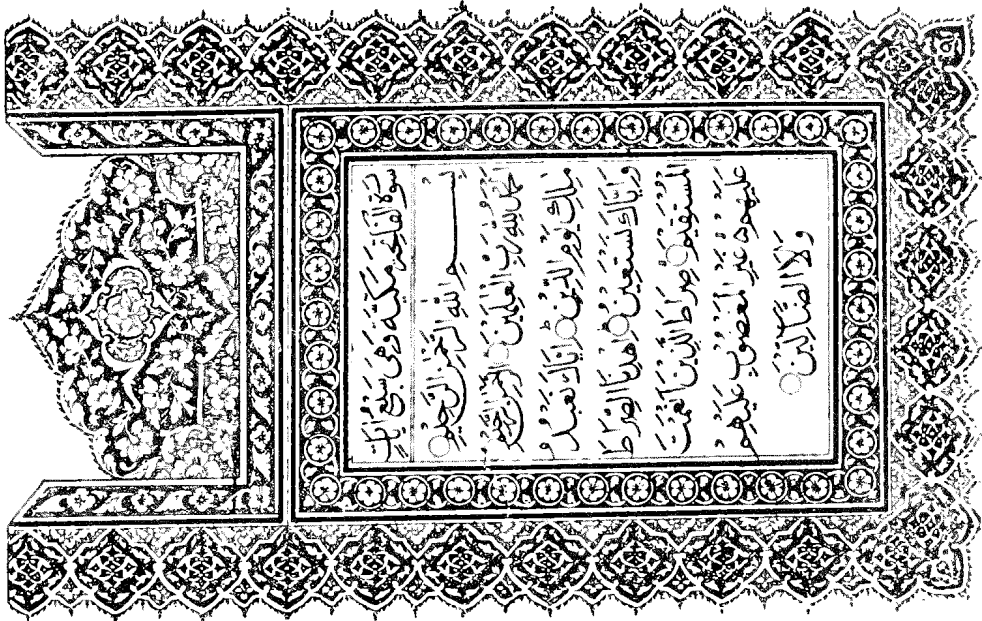 سُورَةُ الْفَاتِحَةِ مَكِّيَّةٌ وَهِيَ سَبْعُ اٰيَاتٍ
بِسْمِ اللّٰهِ الرَّحْمٰنِ الرَّحِيْمِ
اَلْحَمْدُ لِلّٰهِ رَبِّ الْعٰلَمِيْنَ الرَّحْمٰنِ الرَّحِيْمِ
مٰلِكِ يَوْمِ الدِّيْنِ اِيَّاكَ نَعْبُدُ
وَاِيَّاكَ نَسْتَعِيْنُ اِهْدِنَا الصِّرَاطَ
الْمُسْتَقِيْمَ صِرَاطَ الَّذِيْنَ اَنْعَمْتَ
عَلَيْهِمْ غَيْرِ الْمَغْضُوْبِ عَلَيْهِمْ
وَلَا الضَّآلِّيْنَ